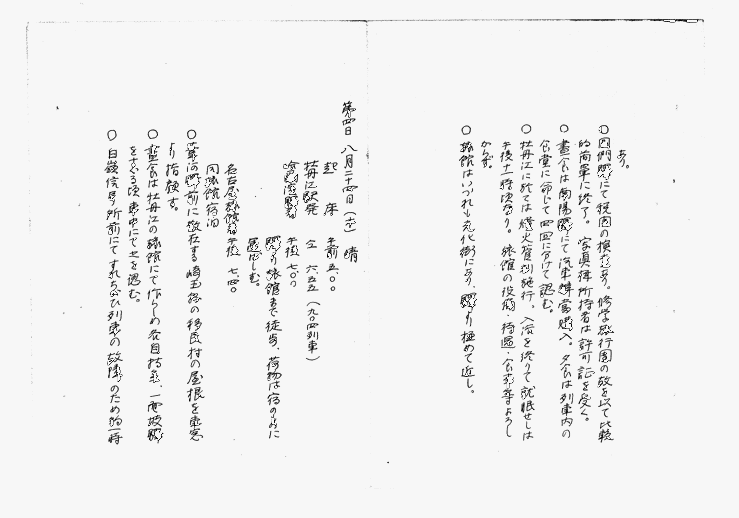 あり。
○図們駅にて税関の検査あり。修学旅行団の故を以て比較
的簡単に終了。写真機所持者は許可証を受く。
○昼食は南陽駅にて汽車辨当購入。夕食は列車内の
食堂に命じて四回に分けて認む。
○牡丹江に於ては燈火管制施行、入浴を終りて就眠せしは
午後十一時頃なり。旅館の設備、待遇、食事等よろし
からず。
○旅館はいづれも文化街にあり、駅より極めて近し。
第四日 八月二十四日(木) 晴
起床 午前五.〇〇
牡丹江駅発 仝 六.五五(九〇四列車)
哈爾濱駅着 午後 七.〇〇
駅より旅館まで徒歩、荷物は宿のものに
運ばしむ。
名古屋旅館着 午後 七.四〇
同旅館宿泊
○駅前に散在する埼玉村の移民村の屋根を車窓
より指顧す。
○昼食は牡丹江の旅館にて作らしめ各自持参、一面坡駅
をすぐる頃車中にて之を認む。
○白嶺信号所前にてすれちがひ列車の故障のため約一時